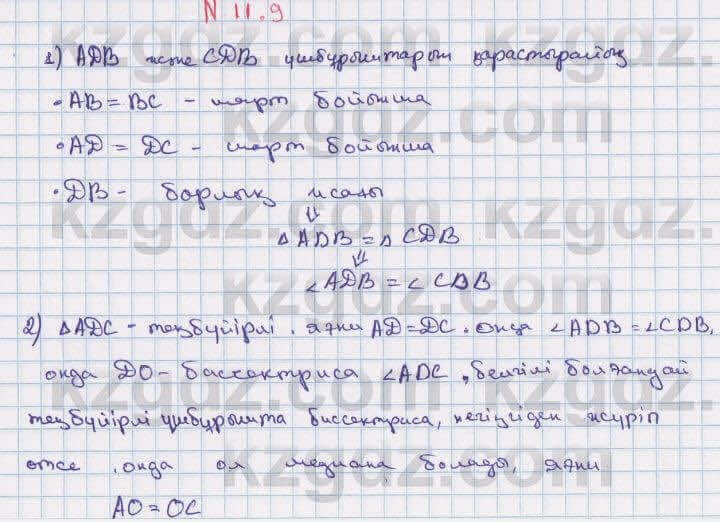 N 11.9
1) ADB және CDB үшбұрыштарын қарастырайық
• AB = BC - шарт бойынша
• AD = DC - шарт бойынша
• DB - барлық
⇓
△ ADB = △ CDB
⇓
∠ADB = ∠ CDB
2) △ADC - теңбүйірлі, яғни AD = DC. Онда ∠ADB = ∠CDB,
онда DO - бассектриса ∠ADC, белгілі болғандай
теңбүйірлі үшбұрышта биссектриса, негізгіден жүріп
өтсе, онда ол медиана болады, яғни
AO = OC
kzgdz.com
kzgdz.com
kzgdz.com
kzgdz.com